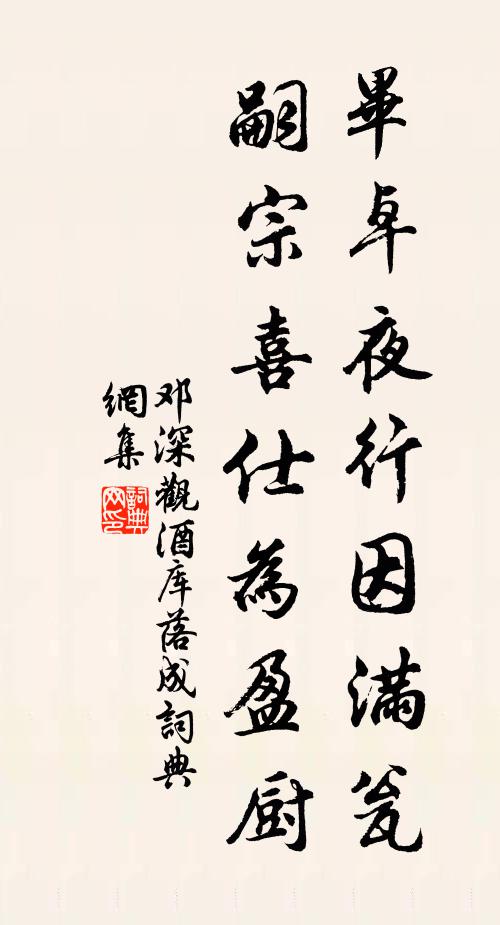 畢卓夜行因满瓮
嗣宗喜仕為盈厨
邓深觀酒库落成詞典
網集
詞典
网印